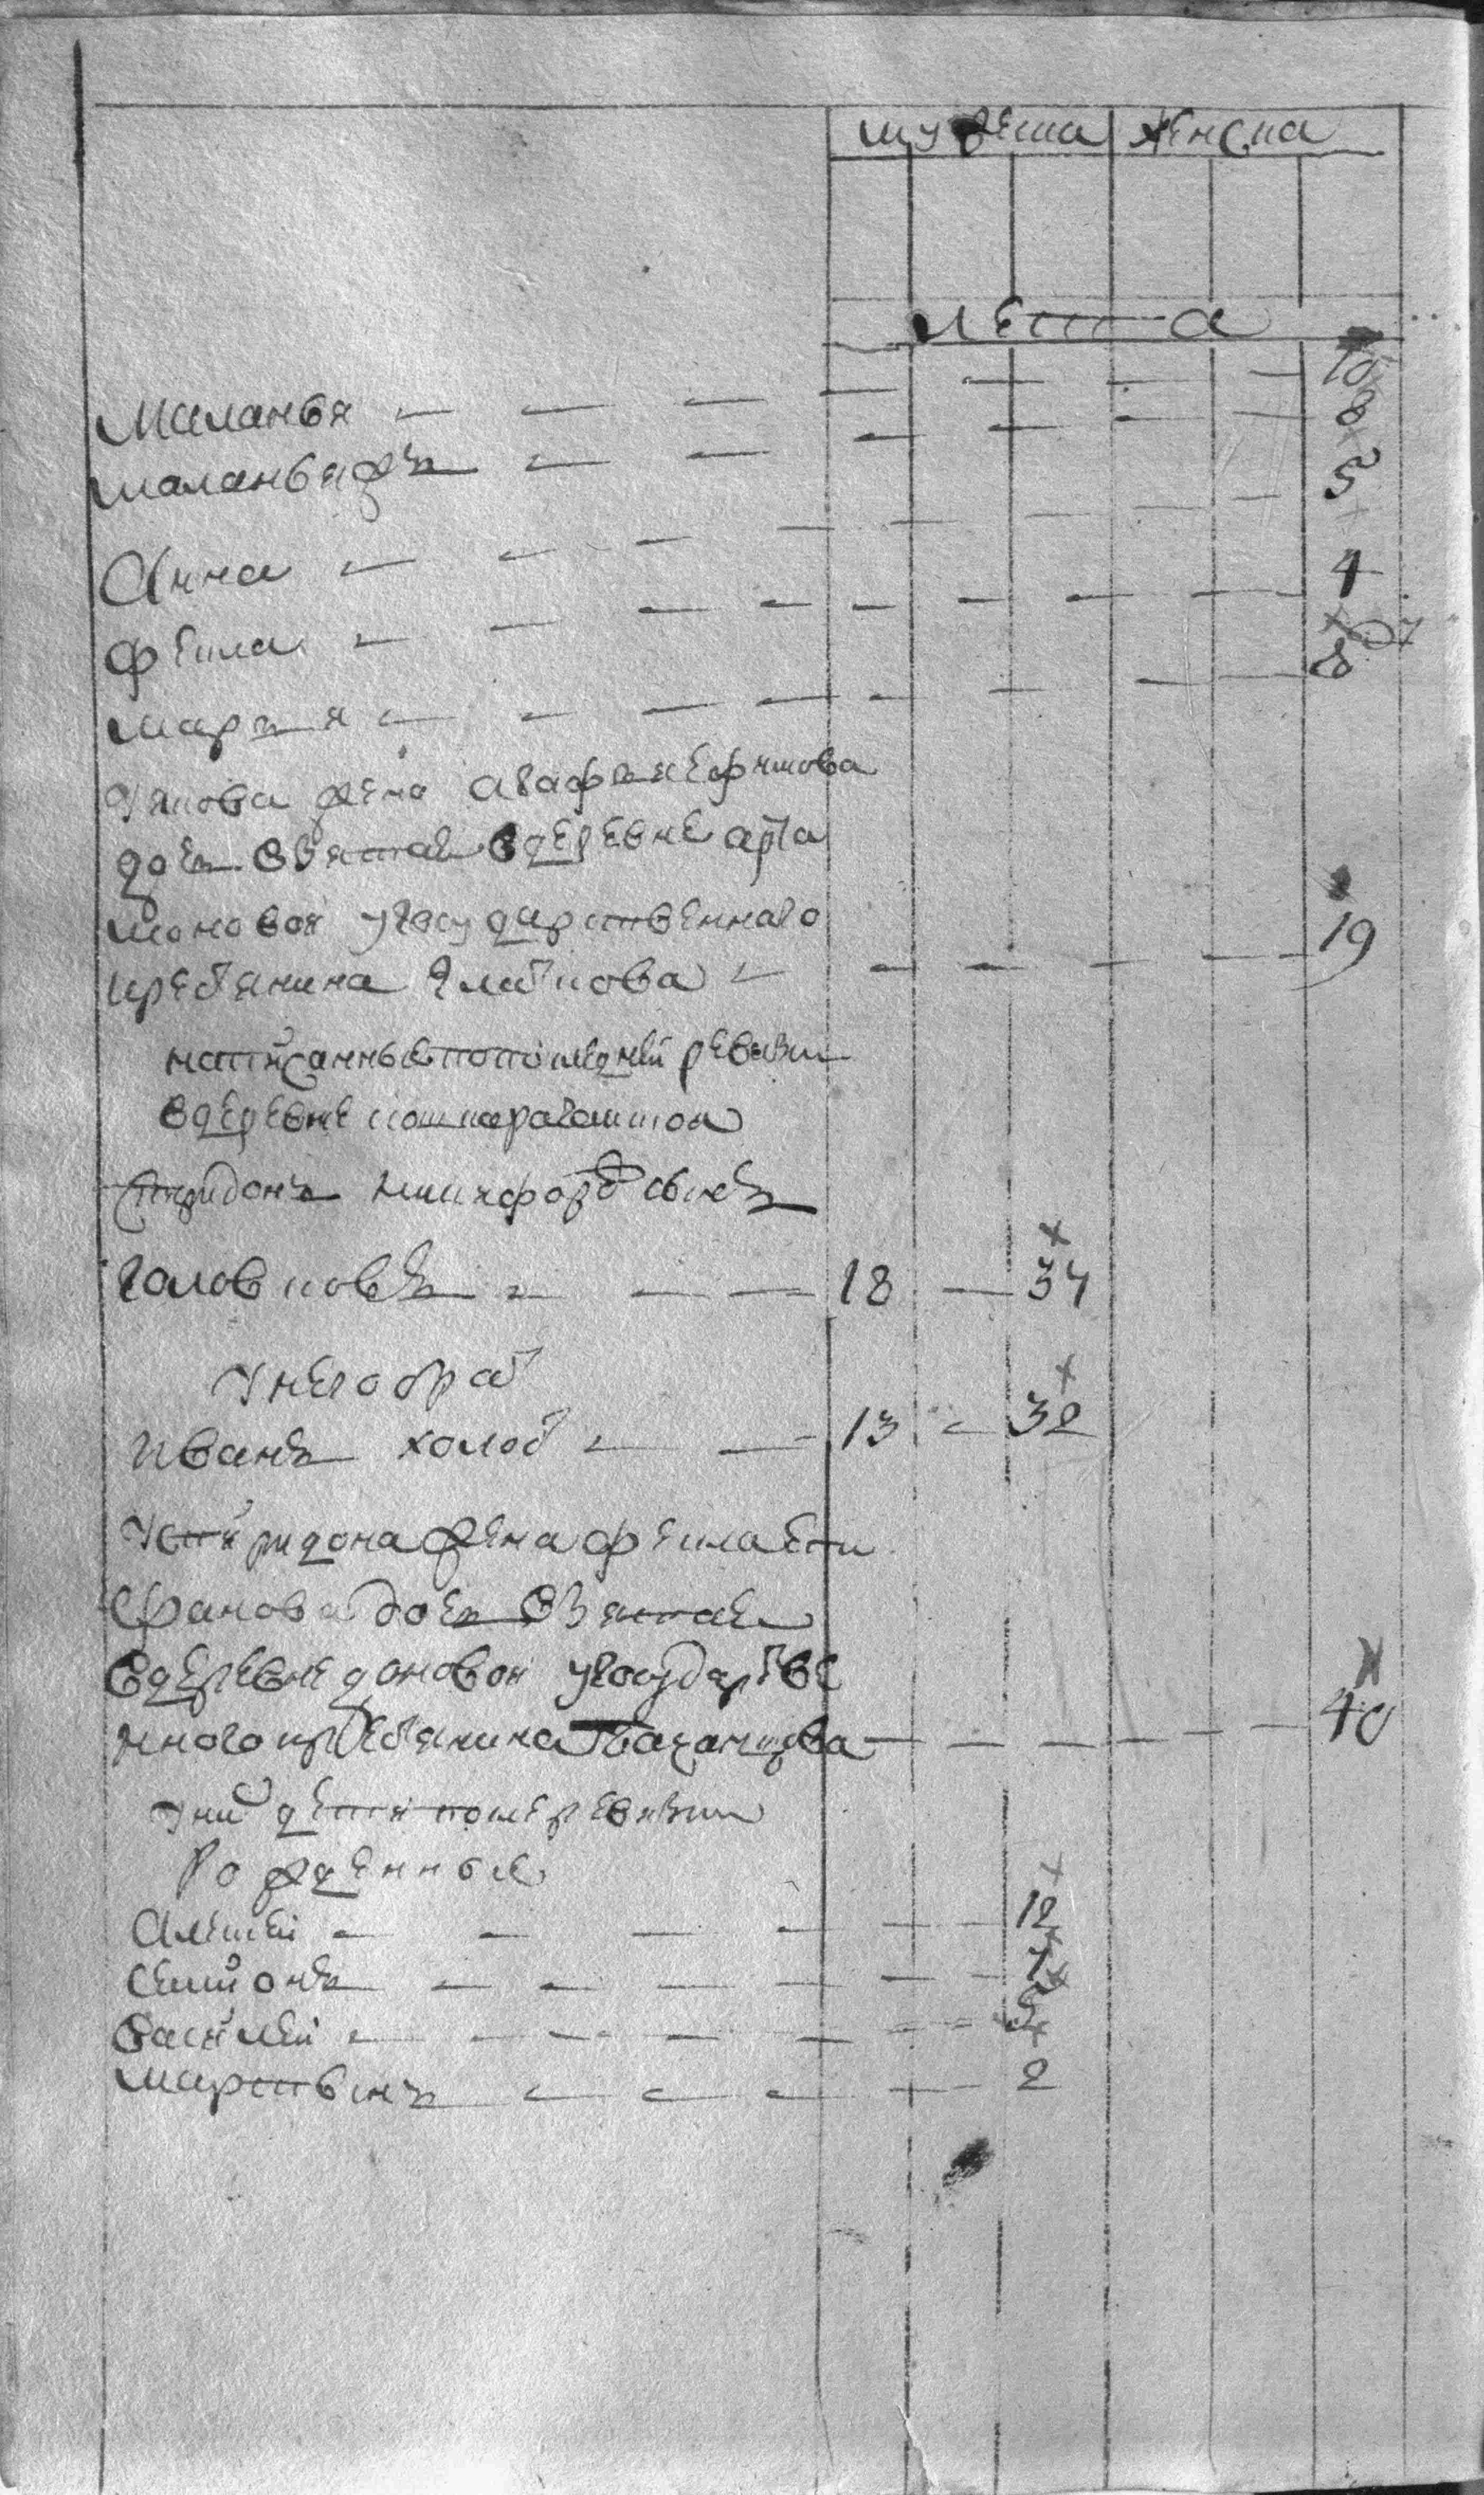 мужеска женска
лета
Маланья 10
Маланья жъ 8
5
Анна 4
Фекла 8
марья
Уякова жена агафья ефимова
дочь взятая вдеревне арта
моновой угосударственнаго
крестьянина 19
написанные попоследней ревизи
вдеревне
Спиридонъ никифоров сынъ
Головковъ 18 34
Унего брат
иванъ холост 13 32
Успиридона жена фекла епи
фанова дочь взятая
вдеревне доновой угосударстве
нного крестьянина 40
Уних детя после ревизии
Рожденныя
Алексей 12
Семионъ 7
Василей 5
мартынъ 2